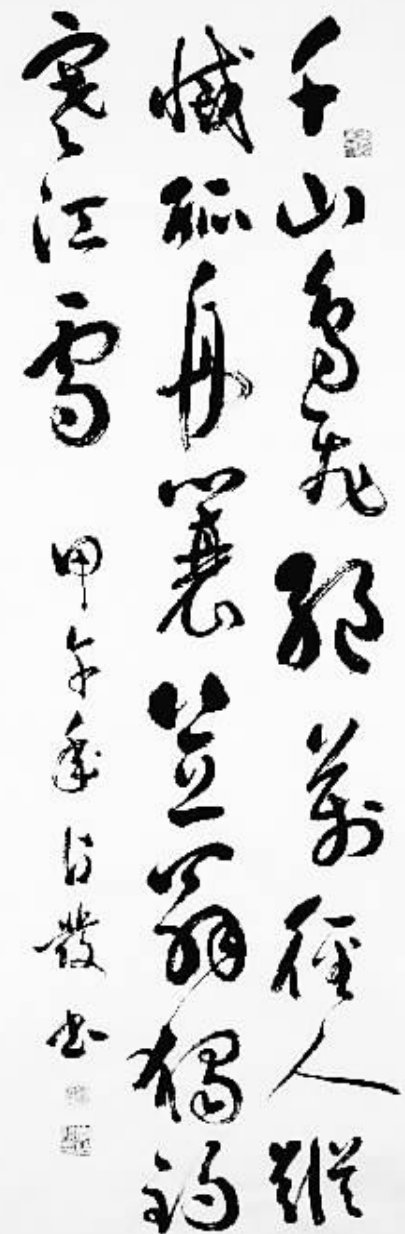 千山鳥飛絕萬徑人蹤
滅孤舟蓑笠翁獨釣
寒江雪
甲午年發书